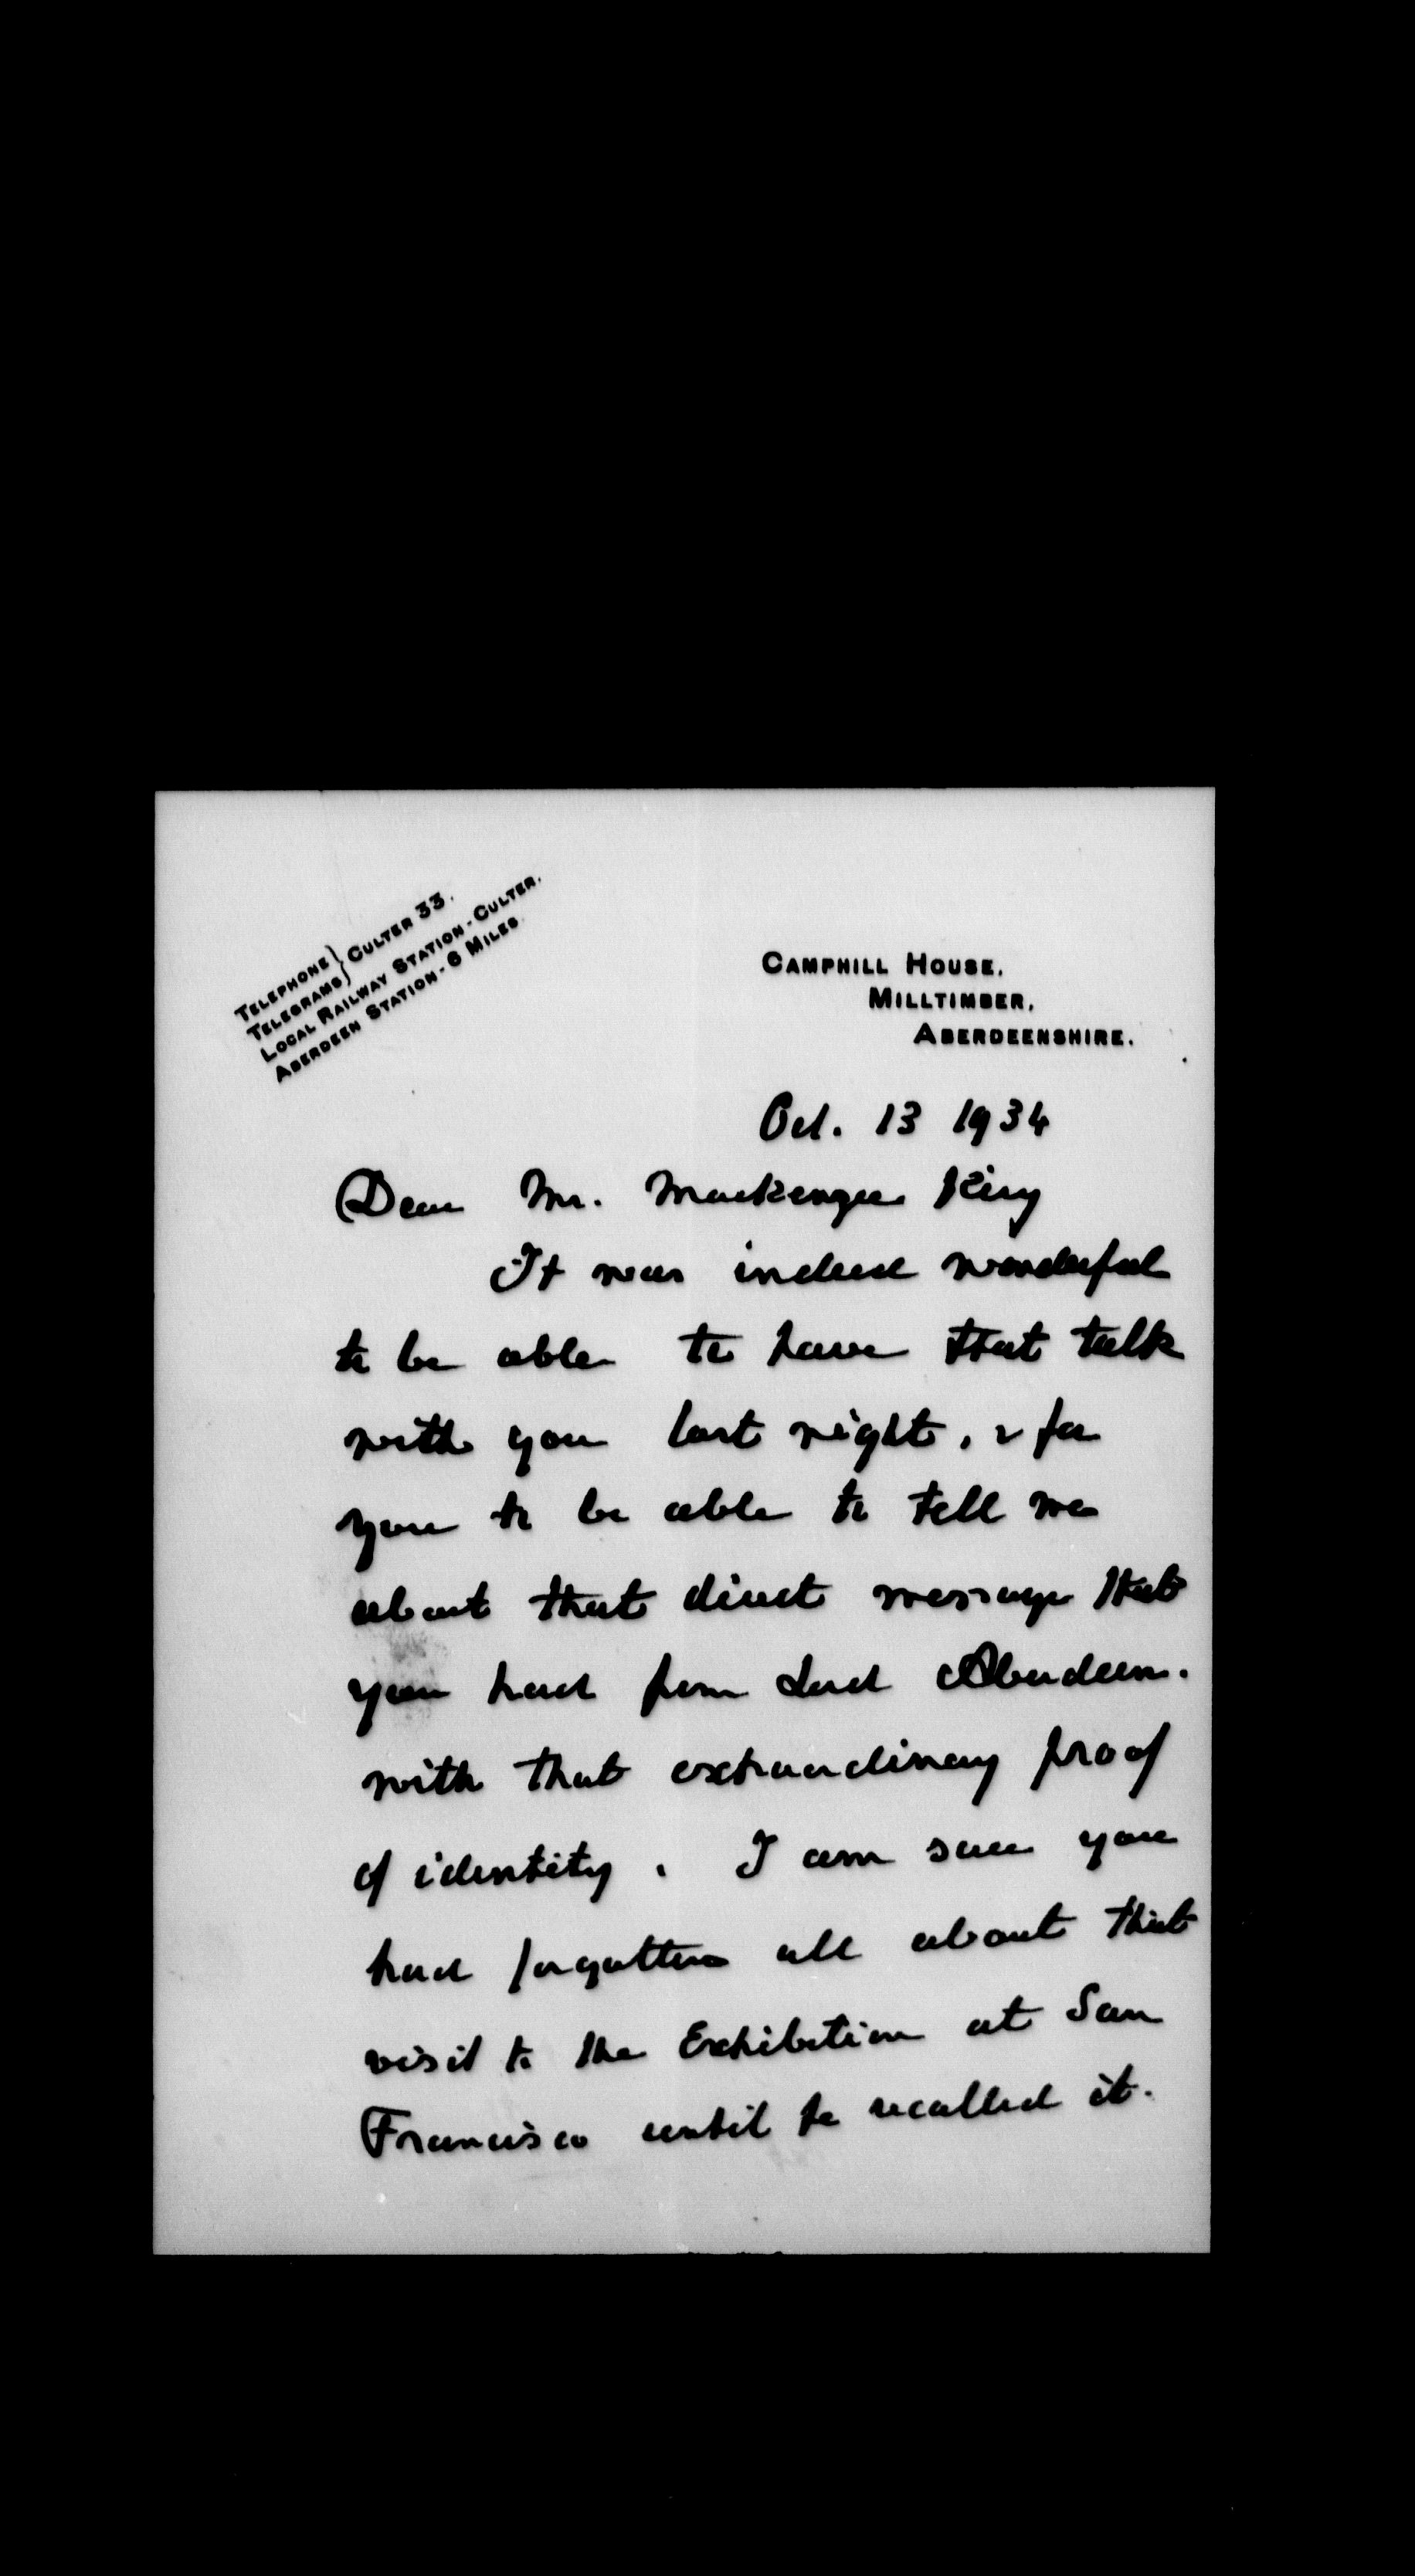 TELEPHONE } CULTER 33.
TELEGRAMS
LOCAL RAILWAY STATION - CULTER.
ABERDEEN STATION - 6 MILES.
CAMPHILL HOUSE,
MILLTIMBER,
ABERDEENSHIRE.
Oct. 13 1934
Dear Mr. Mackenzie King
It was indeed wonderful
to be able to have that talk
with you last night, & for
you to be able to tell me
about that direct message that
you had from Lord Aberdeen.
with that extraordinary proof
of identity. I am sure you
had forgotten all about that
visit to the Exhibition at San
Francisco until he recalled it.